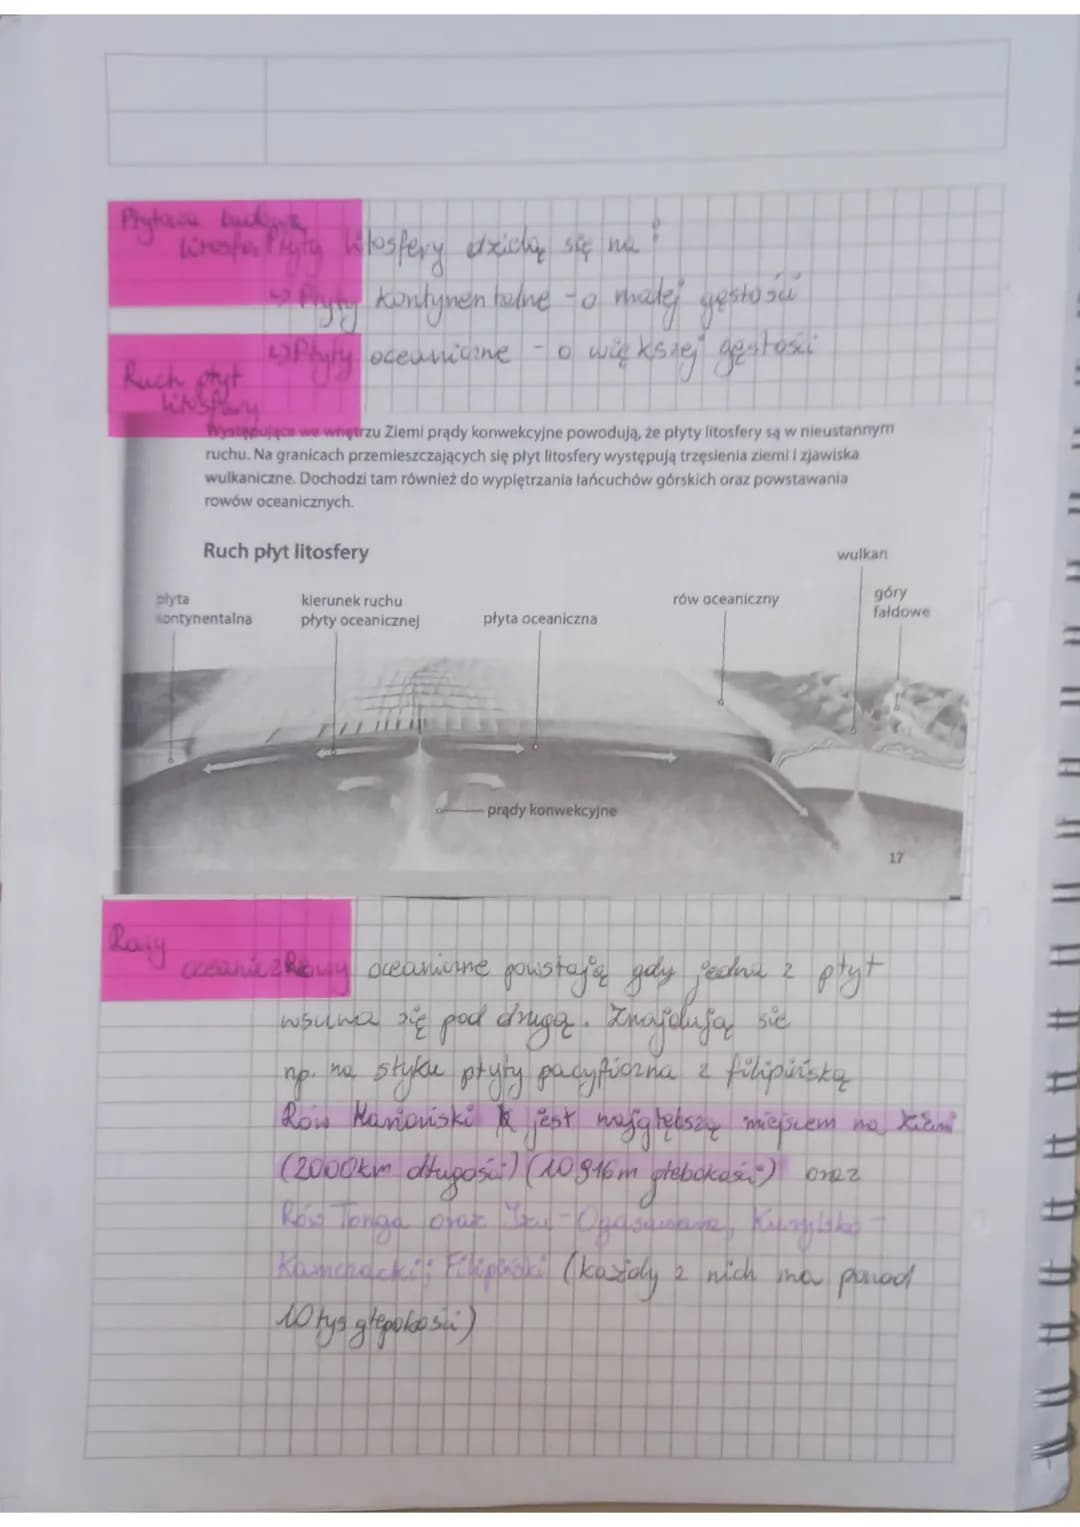 Płytowa budowa
litosfery Płyty litosfery dzielą się na:
↳ Płyty kontynentalne - o małej gęstości
↳ Płyty oceaniczne - o większej gęstości
Ruch płyt
litosfery
Występujące we wnętrzu Ziemi prądy konwekcyjne powodują, że płyty litosfery są w nieustannym
ruchu. Na granicach przemieszczających się płyt litosfery występują trzęsienia ziemi i zjawiska
wulkaniczne. Dochodzi tam również do wypiętrzania łańcuchów górskich oraz powstawania
rowów oceanicznych.
Ruch płyt litosfery
wulkan
płyta
kontynentalna
kierunek ruchu
płyty oceanicznej
płyta oceaniczna
rów oceaniczny
góry
fałdowe
prądy konwekcyjne
17
Rowy
oceaniczne Rowy oceaniczne powstają gdy jedna z płyt
wsuwa się pod drugą. Znajdują się
np. na styku płyty pacyficzna z filipińską
Rów Mariański jest najgłębszą miejscem na Ziemi
(2000km długości) (10 916m głębokości) oraz
Rów Tonga oraz Izu-Ogasawara, Kurylsko-
Kamchacki; Filipiński (każdy z nich ma ponad
10 tys głębokości)